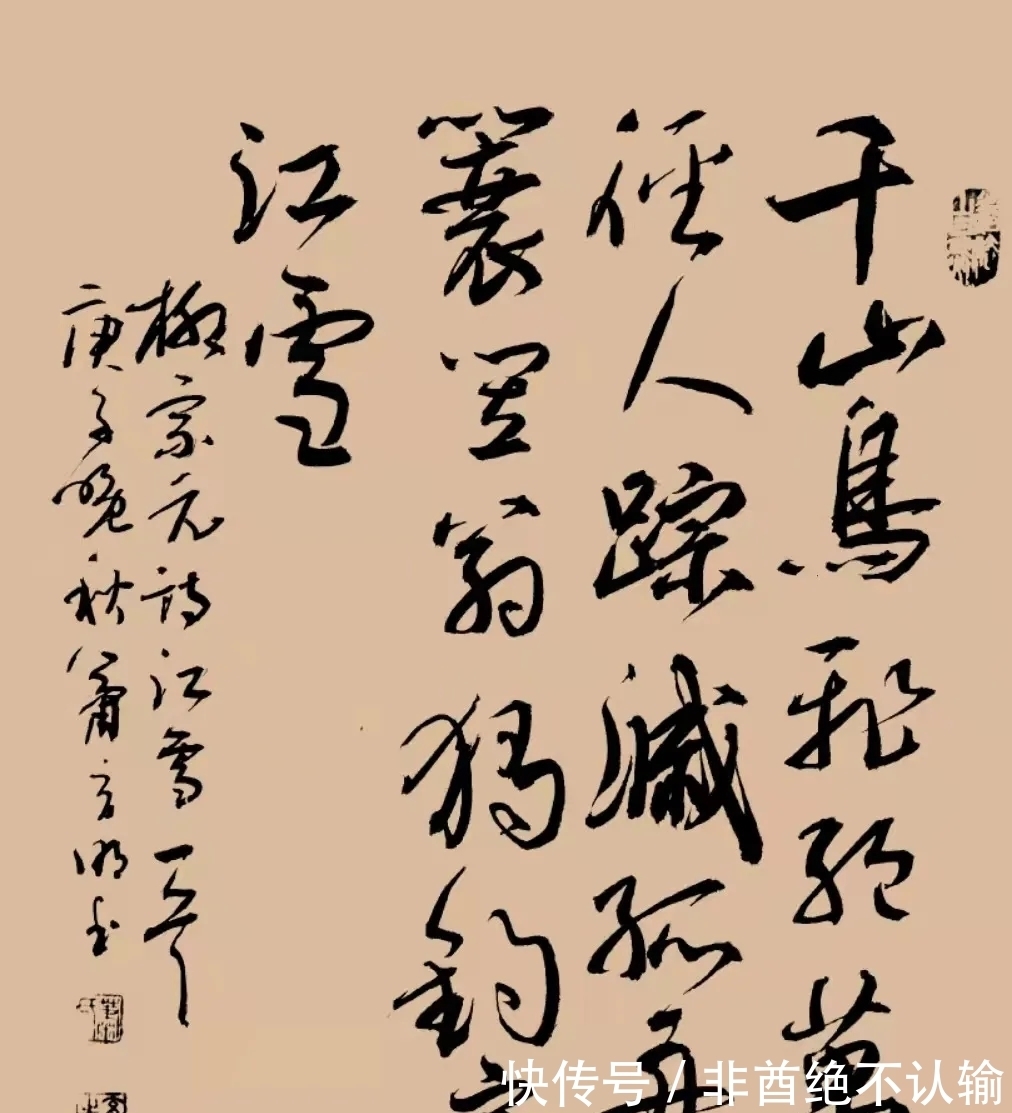 千山鳥飛絕萬
徑人踪滅孤舟
簑笠翁獨釣寒
江雪
柳宗元詩江雪一首
庚子晚秋蕭方明書
快传号 / 非酋绝不认输